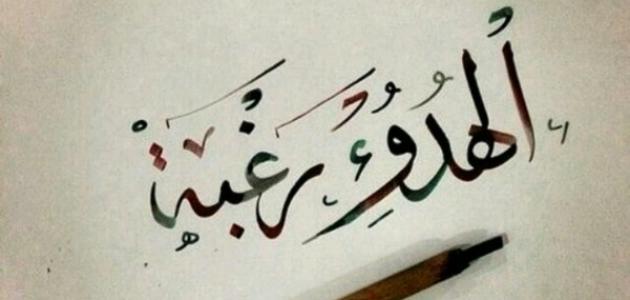 ألهُدُوُءِ رغبَةْ